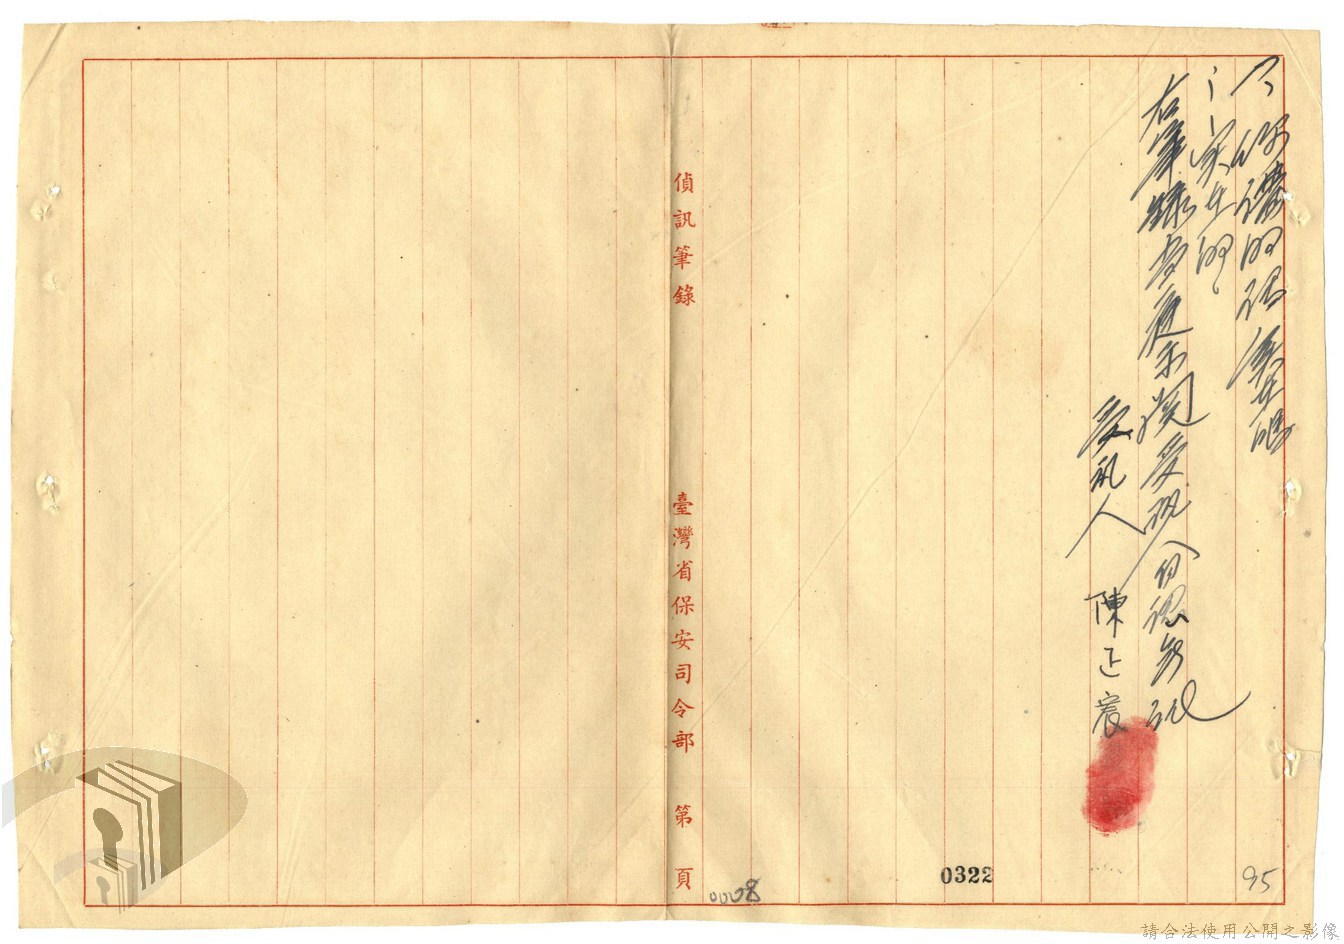 你講的話實在嗎
實在的。
右筆錄當庭示閱受訊人自認無訛
受訊人 陳正宸
偵訊筆錄 臺灣省保安司令部 第 頁
0008
0322
95
請合法使用公開之影像